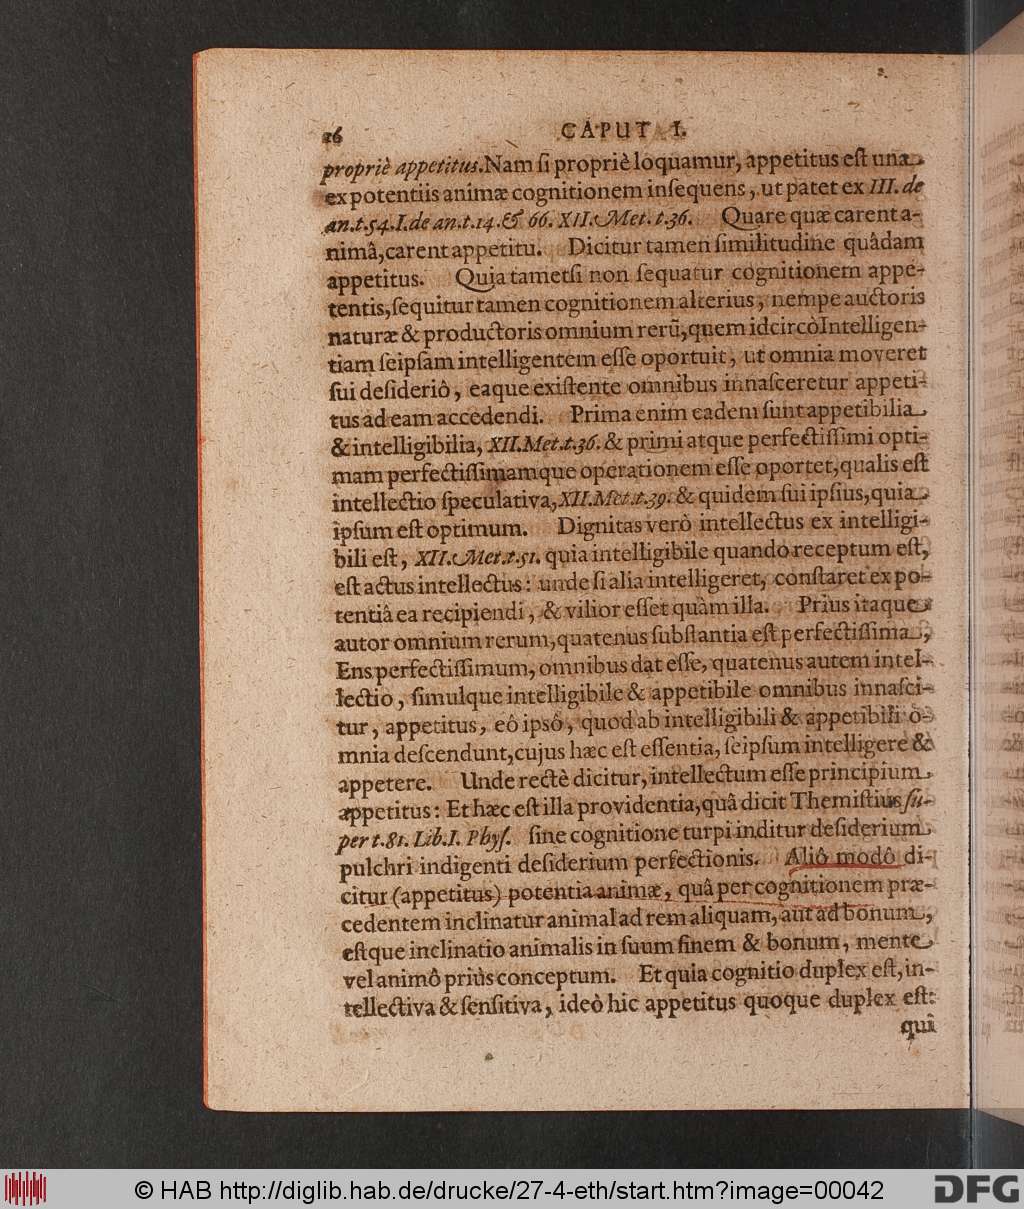 26 CAPUT I.
propriè appetitus. Nam ſi propriè loquamur, appetitus eſt una
ex potentiis animæ cognitionem inſequens, ut patet ex III. de
an. t. 54. I. de an. t. 14. & 66. XII. Met. t. 36. Quare quæ carent a-
nimâ, carent appetitu. Dicitur tamen ſimilitudine quâdam
appetitus. Quia tametſi non ſequatur cognitionem appe-
tentis, ſequitur tamen cognitionem alterius, nempe auctoris
naturæ & productoris omnium rerũ, quem idcircò Intelligen-
tiam ſeipſam intelligentem eſſe oportuit, ut omnia moveret
ſui deſideriô, eaque exiſtente omnibus innaſceretur appeti-
tus ad eam accedendi. Prima enim eadem ſunt appetibilia
& intelligibilia, XII. Met. t. 36. & primi atque perfectiſſimi opti-
mam perfectiſſimamque operationem eſſe oportet, qualis eſt
intellectio ſpeculativa, XII. Met. t. 39. & quidem ſui ipſius, quia
ipſum eſt optimum. Dignitas verò intellectus ex intelligi-
bili eſt, XII. Met. t. 51. quia intelligibile quando receptum eſt,
eſt actus intellectus: unde ſi alia intelligeret, conſtaret ex po-
tentiâ ea recipiendi, & vilior eſſet quàm illa. Prius itaque
autor omnium rerum, quatenus ſubſtantia eſt perfectiſſima,
Ens perfectiſſimum, omnibus dat eſſe, quatenus autem intel-
lectio, ſimulque intelligibile & appetibile omnibus innaſci-
tur, appetitus, eô ipsô, quod ab intelligibili & appetibili o-
mnia deſcendunt, cujus hæc eſt eſſentia, ſeipſum intelligere &
appetere. Unde rectè dicitur, intellectum eſſe principium
appetitus: Et hæc eſt illa providentia, quâ dicit Themiſtius ſu-
per t. 81. Lib. I. Phyſ. ſine cognitione turpi inditur deſiderium
pulchri indigenti deſiderium perfectionis. Aliô modô di-
citur (appetitus) potentia animæ, quâ per cognitionem præ-
cedentem inclinatur animal ad rem aliquam, aut ad bonum,
eſtque inclinatio animalis in ſuum finem & bonum, mente
vel animô priùs conceptum. Et quia cognitio duplex eſt, in-
tellectiva & ſenſitiva, ideò hic appetitus quoque duplex eſt:
qui
© HAB http://diglib.hab.de/drucke/27-4-eth/start.htm?image=00042
DFG